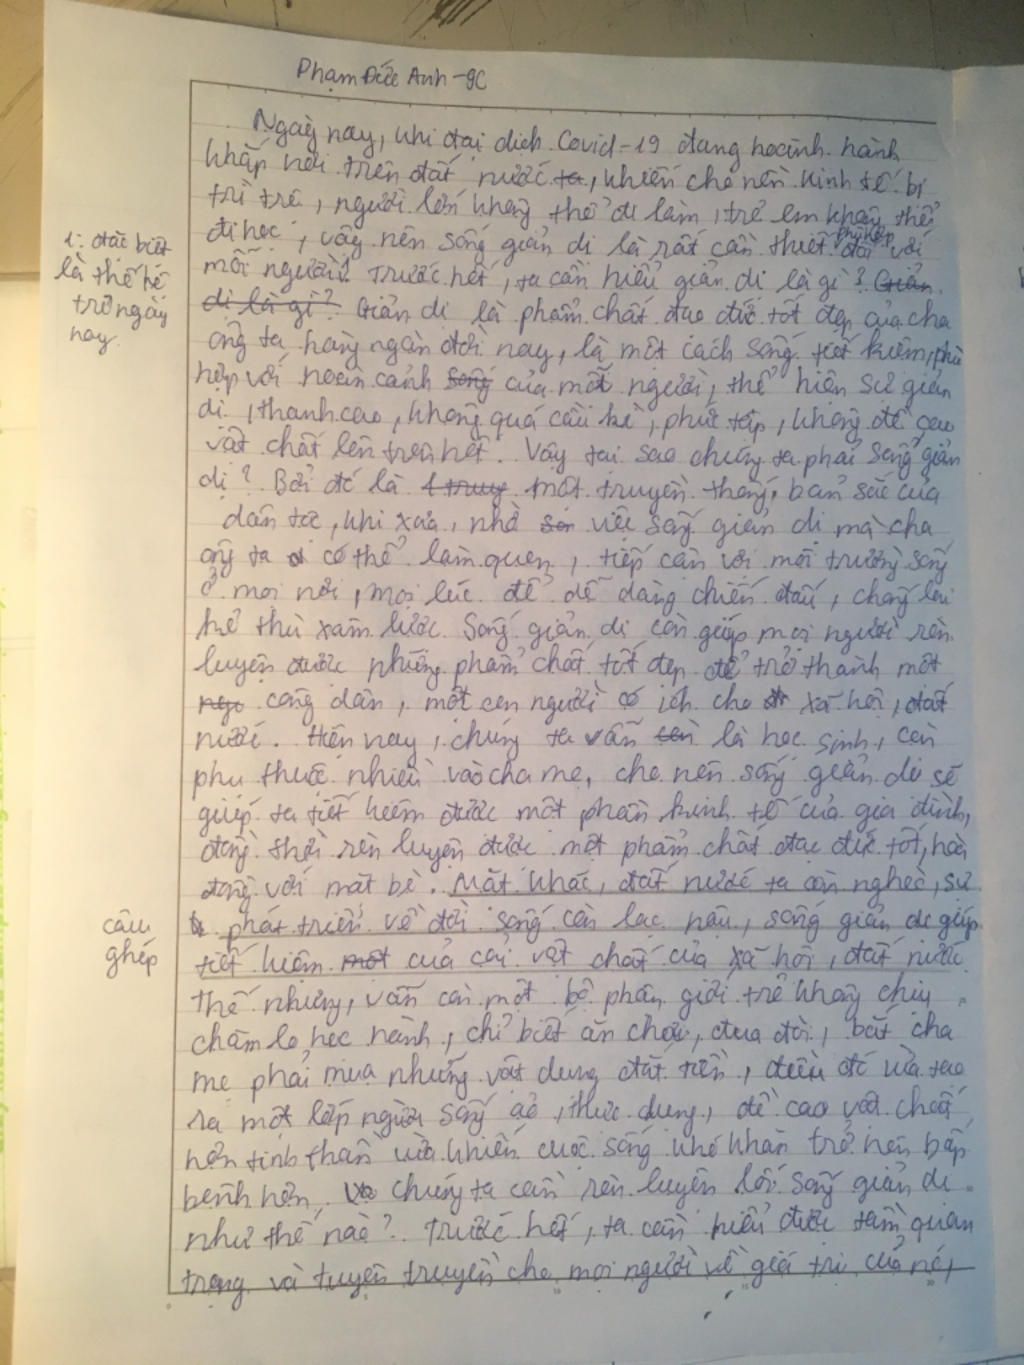 Phạm Đức Anh - 9C
Ngày nay, khi đại dịch Covid-19 đang hoành hành
khắp nơi trên đất nước ta, khiến cho nền kinh tế bị
trì trệ, người lớn không thể đi làm, trẻ em không thể
đi học, vậy nên sống giản dị là rất cần thiết, phù hợp đối với
mỗi người. Trước hết, ta cần hiểu giản dị là gì? Giản
dị là gì? Giản dị là phẩm chất đạo đức tốt đẹp của cha
ông ta hàng ngàn đời nay, là một cách sống tiết kiệm, phù
hợp với hoàn cảnh sống của mỗi người, thể hiện sự giản
dị, thanh cao, không quá cầu kì, phức tạp, không đề cao
vật chất lên trên hết. Vậy tại sao chúng ta phải sống giản
dị? Bởi đó là 1 truy một truyền thống, bản sắc của
dân tộc, khi xưa, nhờ việc sống giản dị mà cha
ông ta có thể làm quen, tiếp cận với môi trường sống
ở mọi nơi, mọi lúc để dễ dàng chiến đấu, chống lại
kẻ thù xâm lược. Sống giản dị còn giúp mọi người rèn
luyện được những phẩm chất tốt đẹp để trở thành một
ngư công dân, một con người có ích cho xã hội, đất
nước. Hiện nay, chúng ta vẫn còn là học sinh, còn
phụ thuộc nhiều vào cha mẹ, cho nên sống giản dị sẽ
giúp ta tiết kiệm được một phần kinh tế của gia đình,
đồng thời rèn luyện được một phẩm chất đạo đức tốt, hòa
đồng với mọi bè. Mặt khác, đất nước ta còn nghèo, sự
phát triển về đời sống còn lạc hậu, sống giản dị giúp
tiết kiệm một của cải vật chất của xã hội, đất nước.
Thế nhưng, vẫn còn một bộ phận giới trẻ không chịu
chăm lo học hành, chỉ biết ăn chơi, đua đòi, bắt cha
mẹ phải mua những vật dụng đắt tiền, điều đó vừa tạo
ra một lớp người sống ảo, thực dụng, đề cao vật chất
hơn tinh thần vừa khiến cuộc sống khó khăn trở nên bấp
bênh hơn. Chúng ta cần rèn luyện lối sống giản dị
như thế nào? Trước hết, ta cần hiểu được tầm quan
trọng và tuyên truyền cho mọi người về giá trị của nó,
1: đặc biệt
là thế hệ
trẻ ngày
nay.
câu
ghép